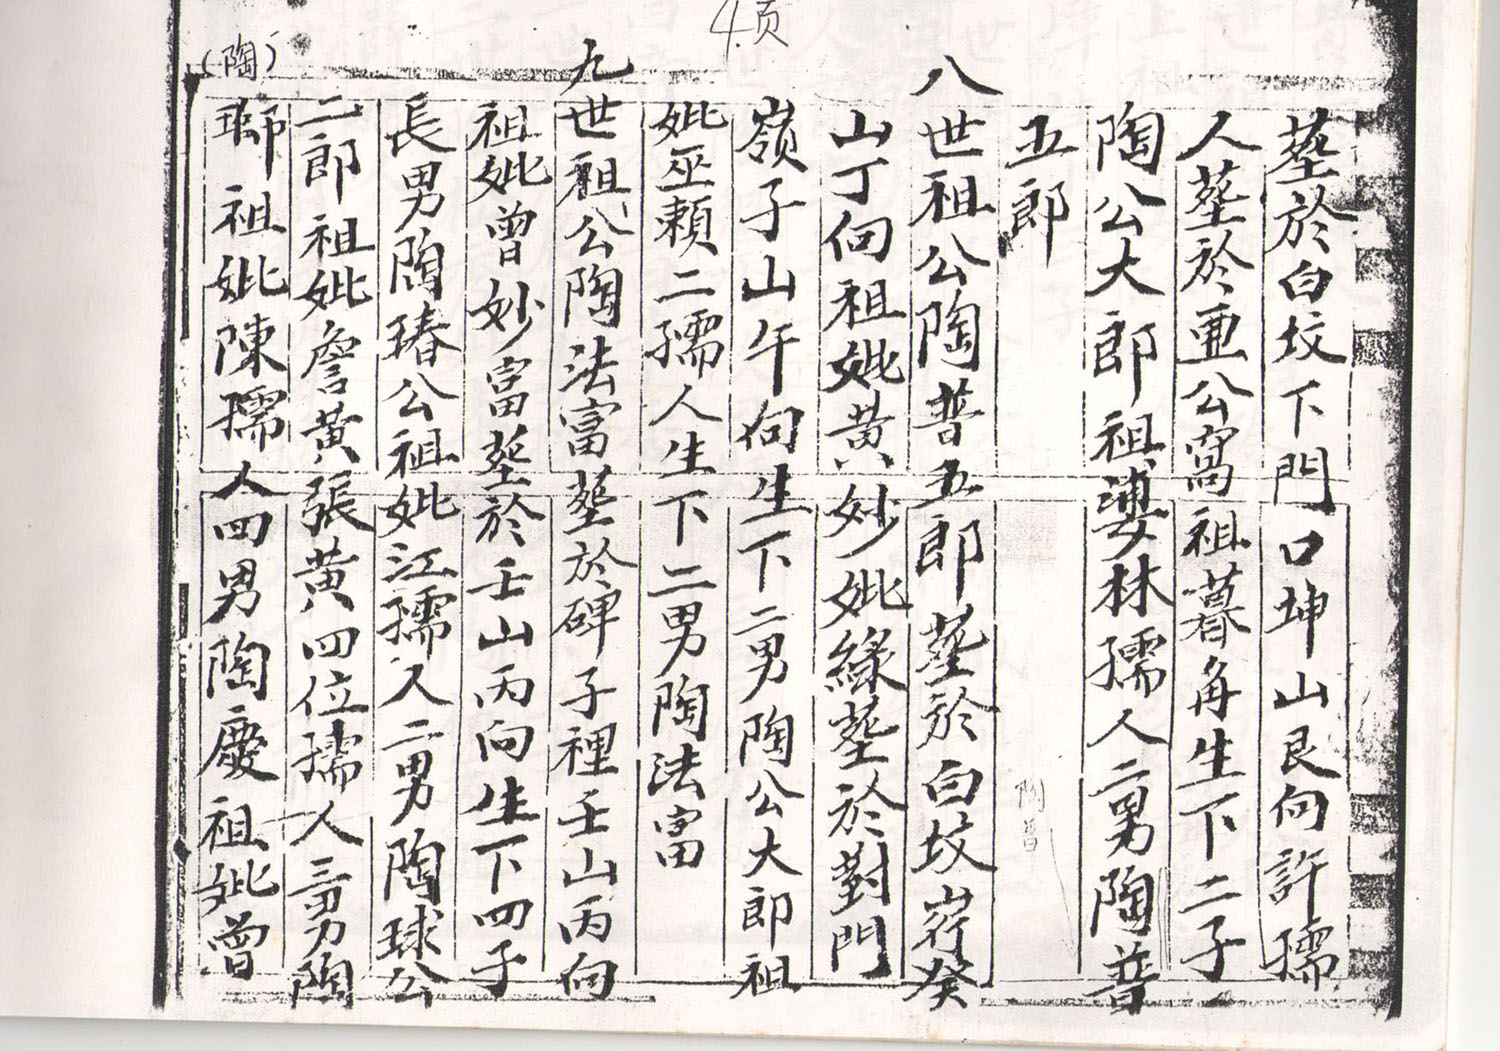 4页
(陶)
塟於白坟下門口坤山艮向許孺
人塟於重公窩祖暮角生下二子
陶公大郎祖婆林孺人二男陶普
五郎
陶普
八世祖公陶普五郎塟於白坟岃癸
山丁向祖妣黄妙妣緣塟於對門
嶺子山午向生下二男陶公大郎祖
妣巫賴二孺人生下二男陶法富
九世祖公陶法富塟於碑子裡壬山丙向
祖妣曾妙富塟於壬山丙向生下四子
長男陶瑃公祖妣江孺人二男陶球公
二郎祖妣詹黄張黄四位孺人三男陶
瑯祖妣陳孺人四男陶慶祖妣曾